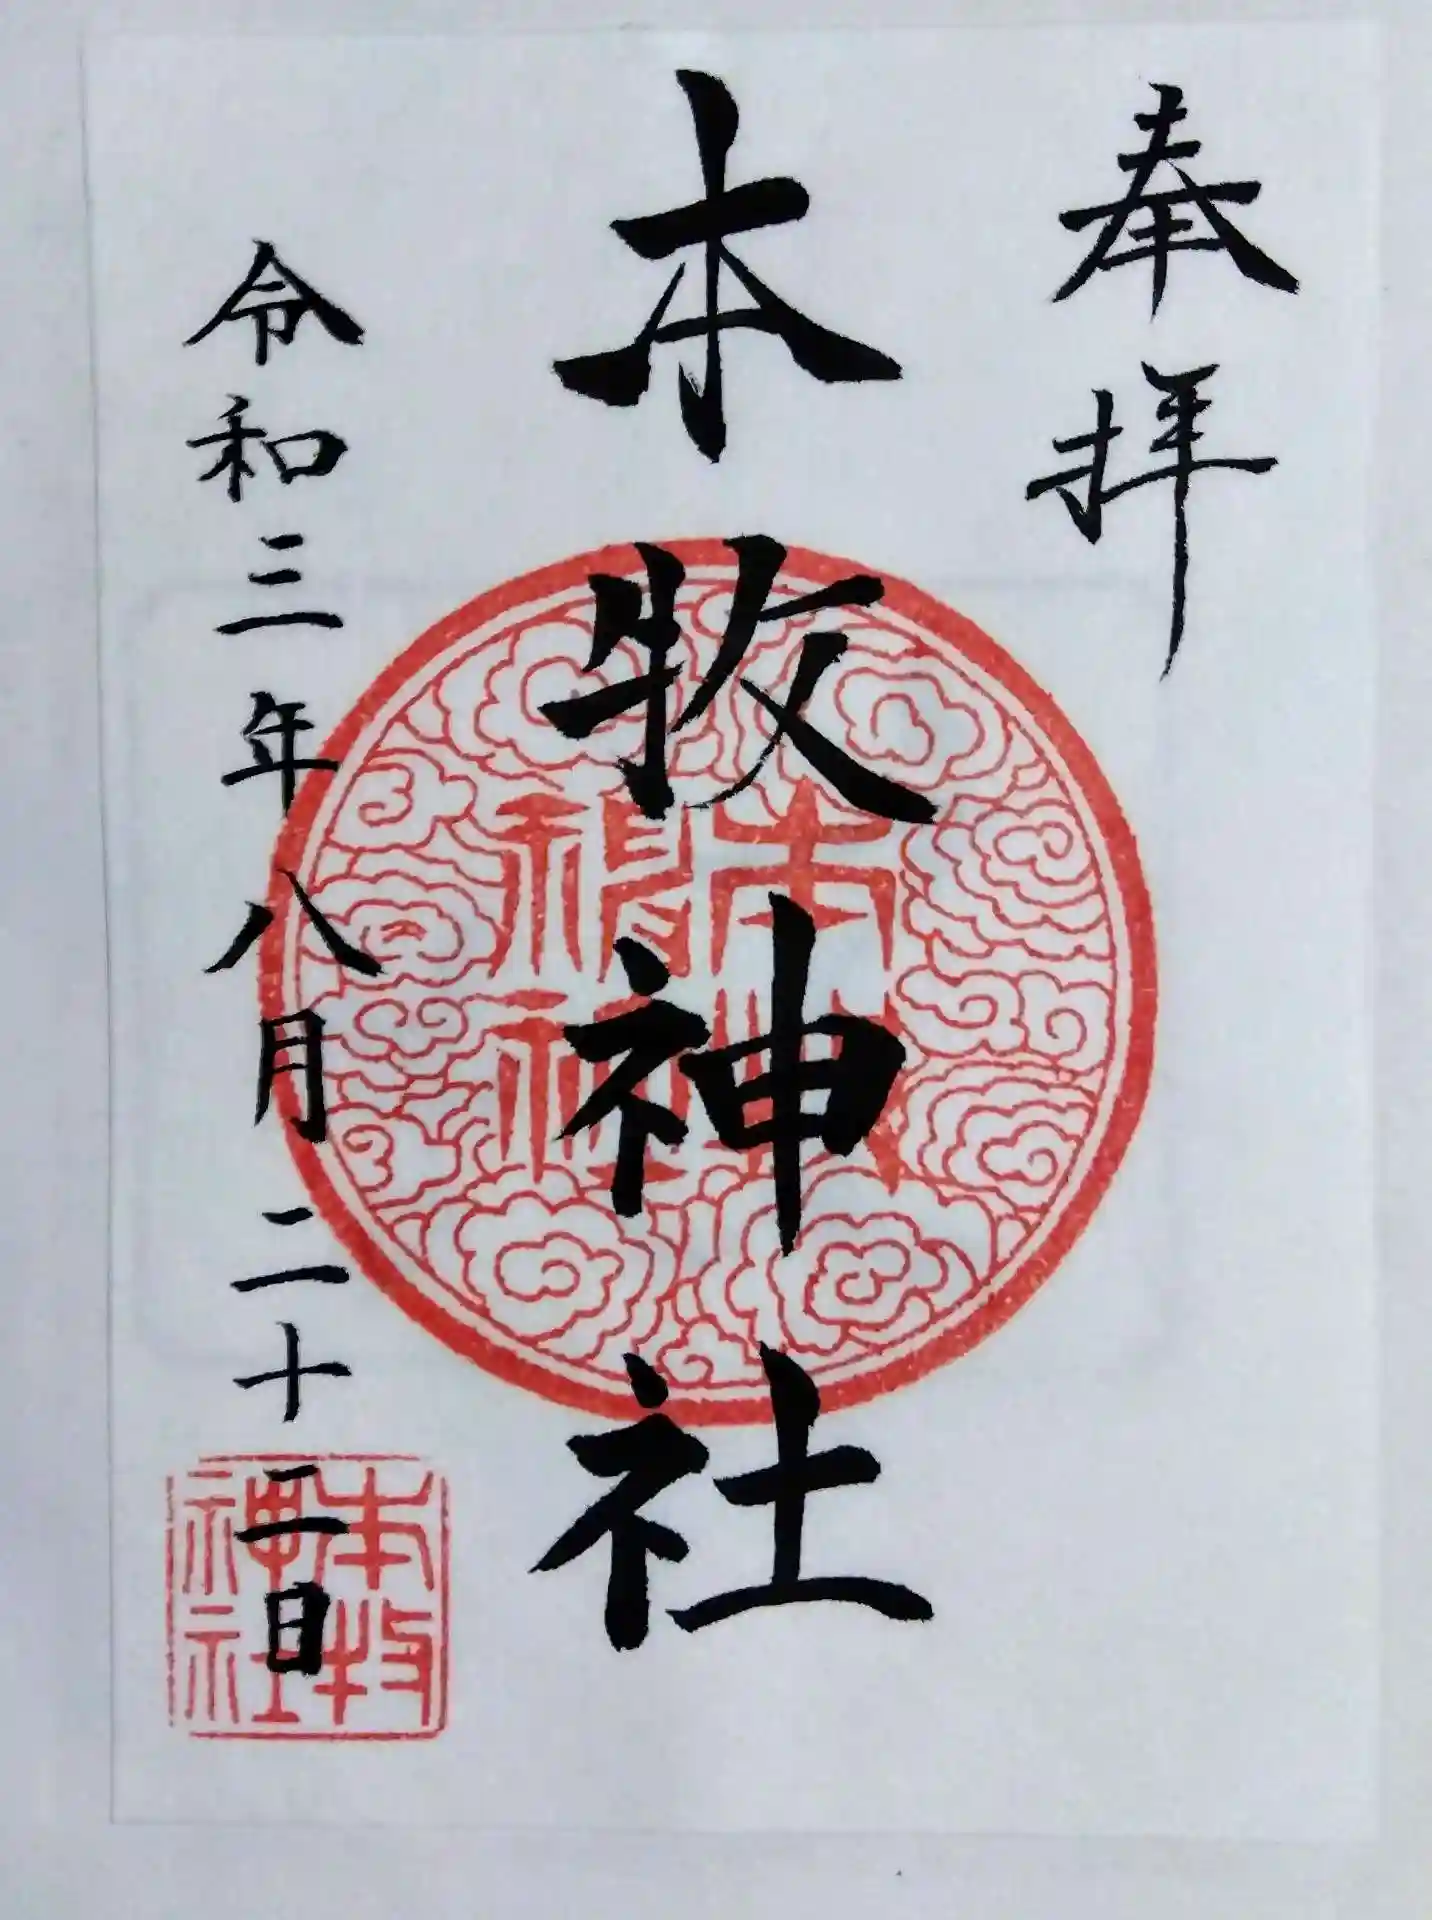 奉拝
本牧神社
令和三年八月二十二日
本牧神社
本牧神社